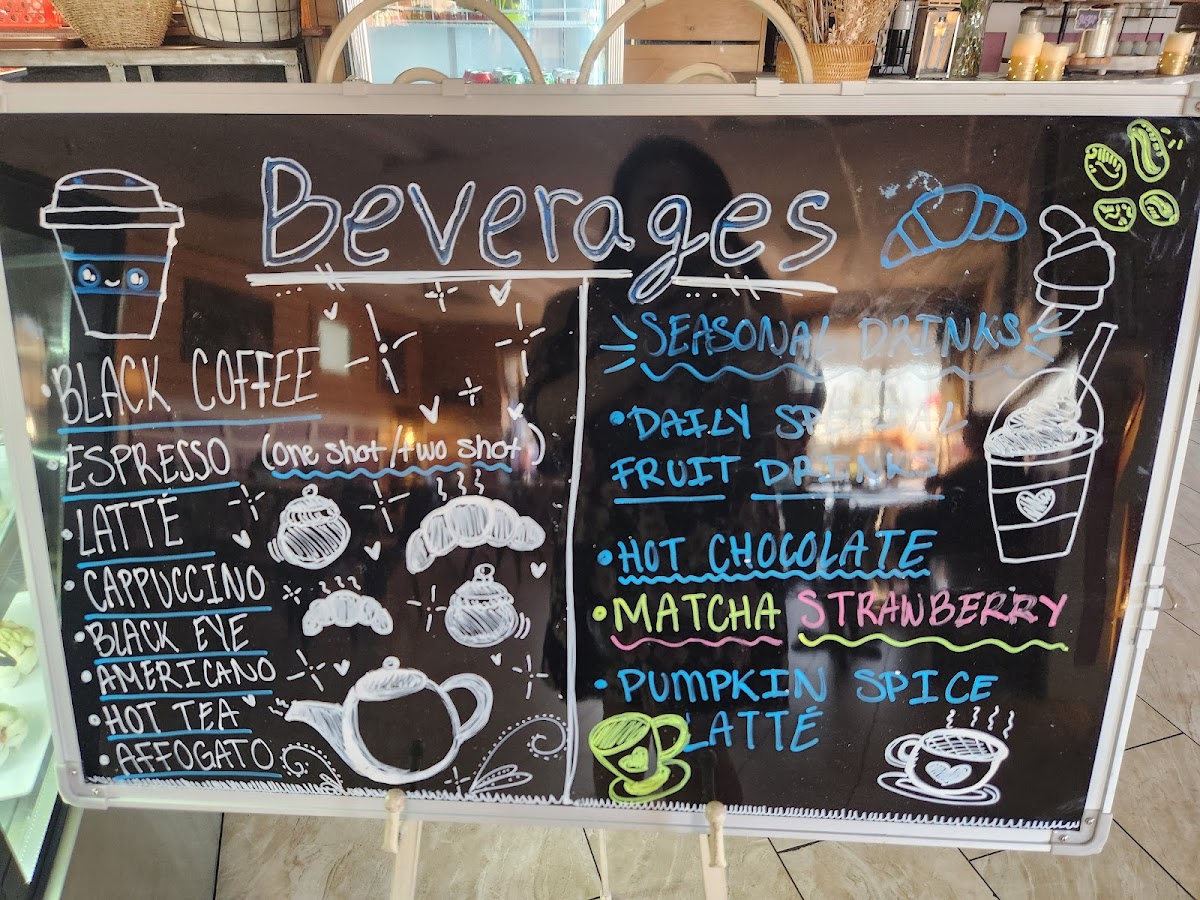 Beverages
• BLACK COFFEE
• ESPRESSO (one shot/two shot)
• LATTÉ
• CAPPUCCINO
• BLACK EYE
• AMERICANO
• HOT TEA
• AFFOGATO
SEASONAL DRINKS
• DAILY SPECIAL
FRUIT DRINKS
• HOT CHOCOLATE
• MATCHA STRAWBERRY
• PUMPKIN SPICE
LATTÉ